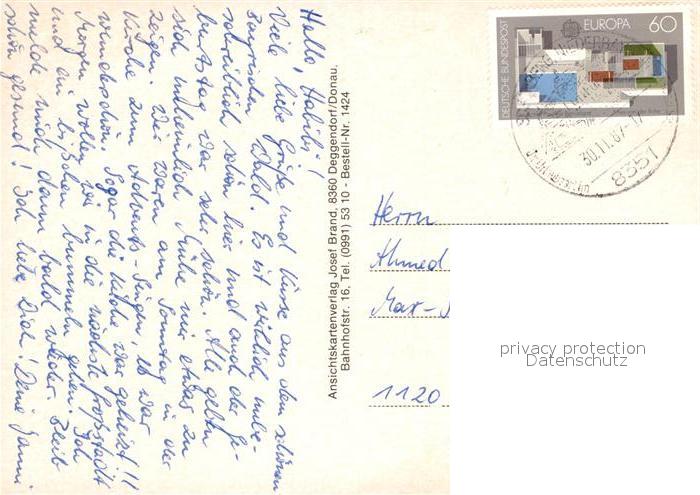 Hallo, Habibi!
Viele liebe Grüße und Küsse aus dem schönen
Bayrischen Wald. Es ist wirklich unbe-
schreiblich schön hier und auch der Ge-
burtstag war sehr schön. Alle geben
sich unheimlich Mühe mir etwas zu
zeigen. Wir waren am Sonntag in der
Kirche zum Advents-Singen, es war
wunderschön. Sogar die Kirche war geheizt!!
Morgen wollen wir in die nächste Großstadt
und ein bißchen bummeln gehen. Ich
melde mich dann bald wieder. Bleib
schön gesund! Ich liebe Dich! Deine
Ansichtskartenverlag Josef Brand, 8360 Deggendorf/Donau.
Bahnhofstr. 16, Tel. (0991) 53 10 - Bestell-Nr. 1424
DEUTSCHE BUNDESPOST
EUROPA 60
30.11.87-17
8351
Herrn
Ahmed
Max-
1120
privacy protection
Datenschutz